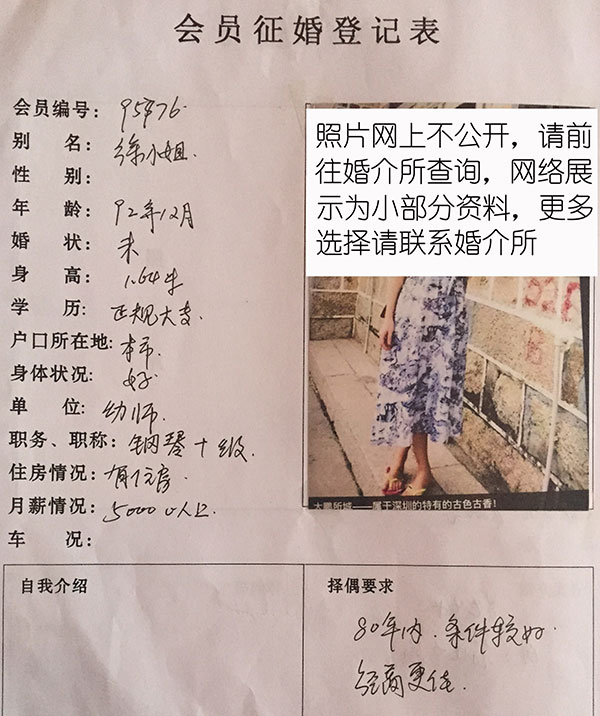 会员征婚登记表
会员编号: 95876
别 名: 徐小姐.
性 别:
年 龄: 92年12月
婚 状: 未
身 高: 1.64米
学 历: 正规大专.
户口所在地: 本市.
身体状况: 好
单 位: 幼师.
职务、职称: 钢琴十级.
住房情况: 有住房.
月薪情况: 5000以上
车 况:
照片网上不公开，请前
往婚介所查询，网络展
示为小部分资料，更多
选择请联系婚介所
大鹏新城——属于深圳的特有的古色古香！
自我介绍
择偶要求
80年内.条件较好.
经商更佳.